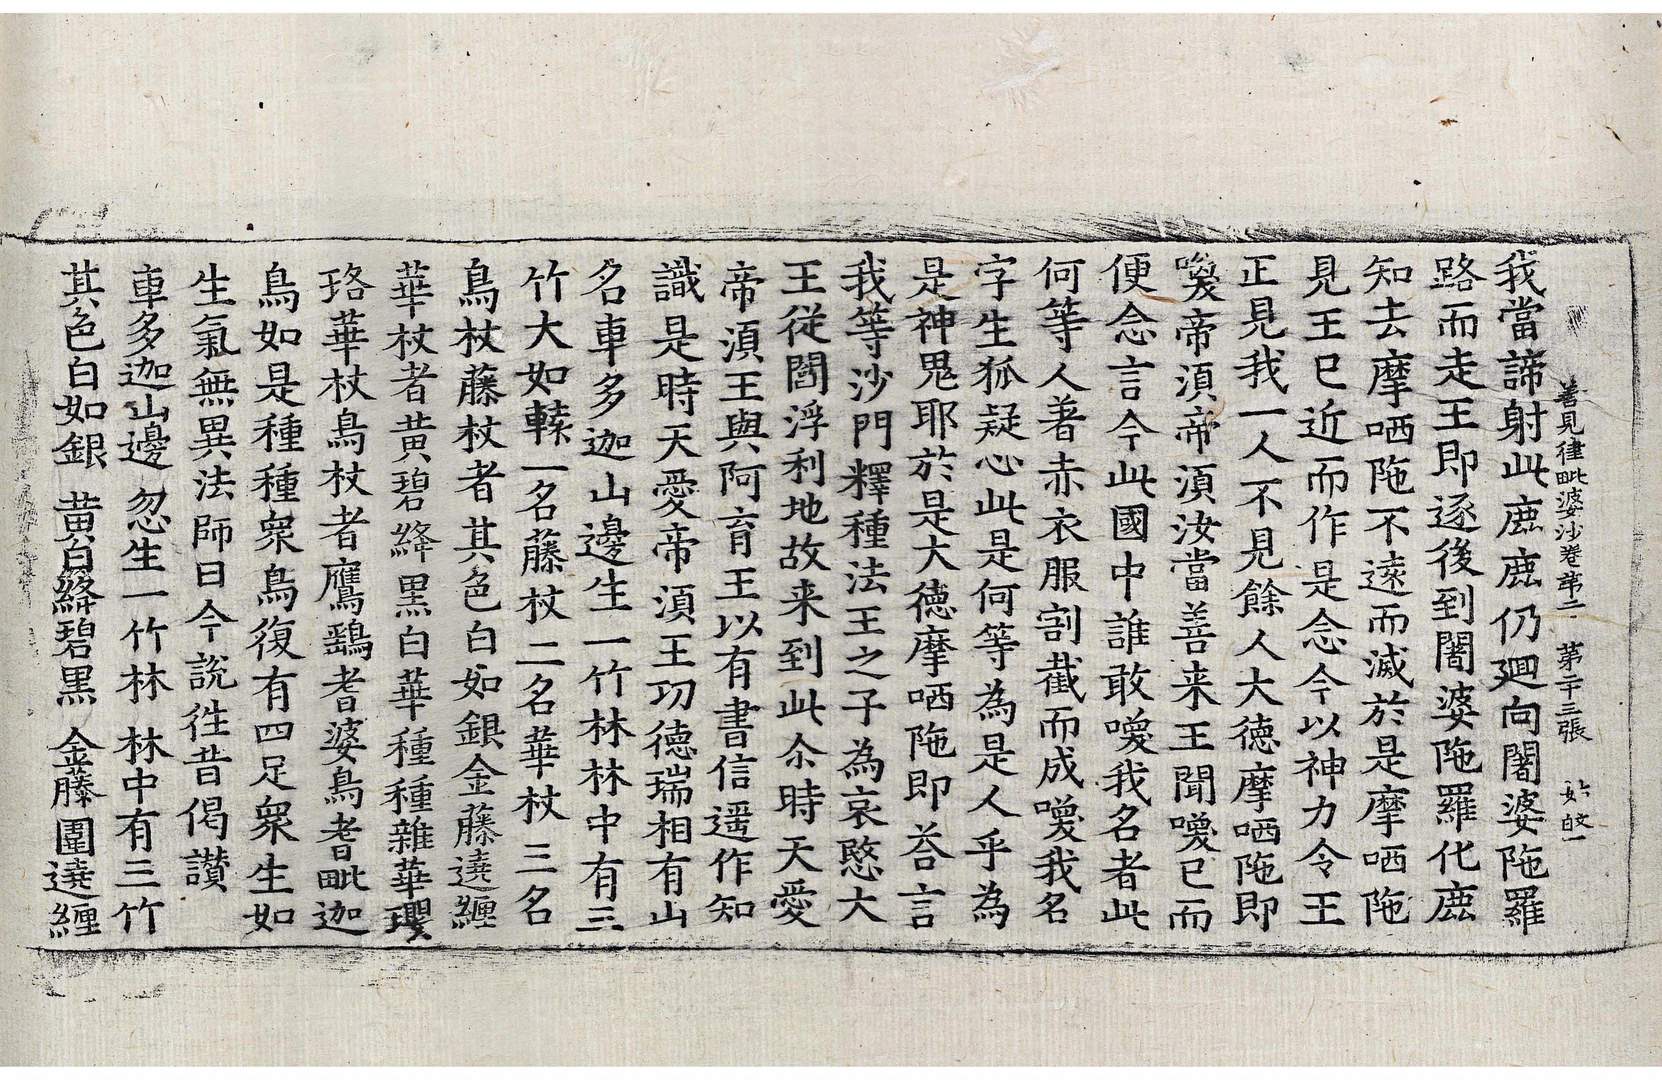 善見律毗婆沙卷第二　第二十三張
我當諦射此鹿鹿仍迴向闍婆陁羅
路而走王即逐後到闍婆陁羅化鹿
知去摩哂陁不遠而滅於是摩哂陁
見王已近而作是念今以神力令王
正見我一人不見餘人大德摩哂陁即
喚帝湏帝湏汝當善来王聞喚已而
便念言今此國中誰敢喚我名者此
何等人著赤衣服割截而成喚我名
字生狐疑心此是何等為是人乎為
是神鬼耶於是大德摩哂陁即荅言
我等沙門釋種法王之子為哀愍大
王従閻浮利地故来到此尒時天愛
帝湏王與阿育王以有書信遥作知
識是時天愛帝湏王功德瑞相有山
名車多迦山邊生一竹林林中有三
竹大如轅一名藤杖二名華杖三名
鳥杖藤杖者其色白如銀金藤遶纏
華杖者黄碧絳黒白華種種雜華瓔
珞華杖鳥杖者鷹鷂耆婆鳥耆毗迦
鳥如是種種衆鳥復有四足衆生如
生氣無異法師曰今説徃昔偈讃
車多迦山邊　忽生一竹林　林中有三竹
其色白如銀　黄白絳碧黒　金藤圍遶纏